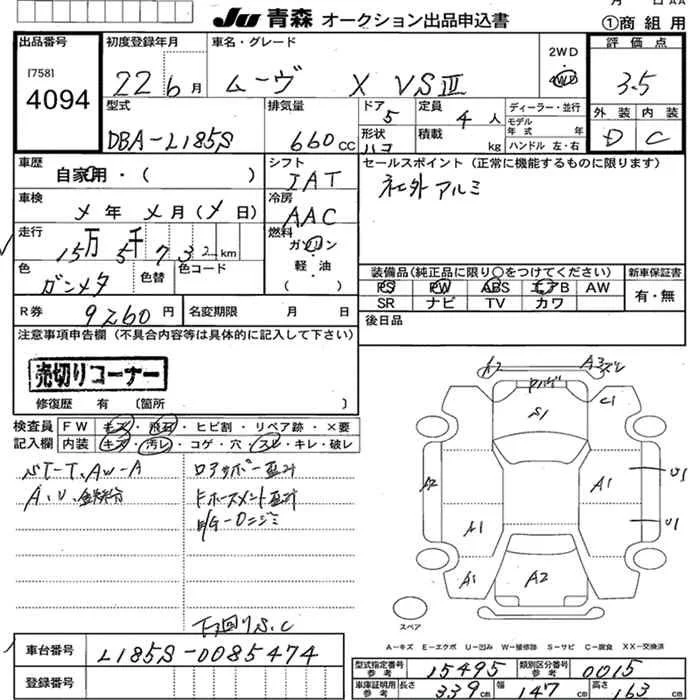 JU 青森 オークション出品申込書
①商 組 用
出品番号
[758]
4094
初度登録年月
22 6月
車名・グレード
ムーヴ X VSⅢ
2WD
4WD
評価点
3.5
外装 内装
D C
型式
DBA-L185S
排気量
660cc
ドア
5
形状
ハコ
定員
4人
積載
kg
ディーラー・並行
モデル
年式 年
ハンドル 左・右
車歴
自家用・( )
シフト
IAT
セールスポイント(正常に機能するものに限ります)
社外アルミ
車検
メ年 メ月(メ日)
冷房
AAC
走行
15万5千732km
燃料
ガソリン
軽・油
( )
色
ガンメタ
色替
色コード
装備品(純正品に限り○をつけてください)
PS PW ABS エアB AW
SR ナビ TV カワ
新車保証書
有・無
R券
9260円
名変期限 月 日
後日品
注意事項申告欄(不具合内容等は具体的に記入して下さい)
売切りコーナー
修復歴 有 〔箇所 〕
検査員
記入欄
FW キズ・飛石・ヒビ割・リペア跡・×要
内装 キズ・汚レ・コゲ・穴・スレ・キレ・破レ
ST-T、AW-A
A、U、鉄粉
ロアサポー歪ミ
Fホースメント歪ミ
E/G-Oニジミ
下廻りS、C
A2
A3ズレ
S1
C1
A2
A1
U1
A1
U1
A1
A2
スペア
A-キズ E-エクボ U-凹み W-補修跡 S-サビ C-腐食 XX-交換済
車台番号
L185S-0085474
登録番号
型式指定番号
参考
15495
類別区分番号
参考
0015
車庫証明用
参考
長さ
339cm
幅
147cm
高さ
163cm